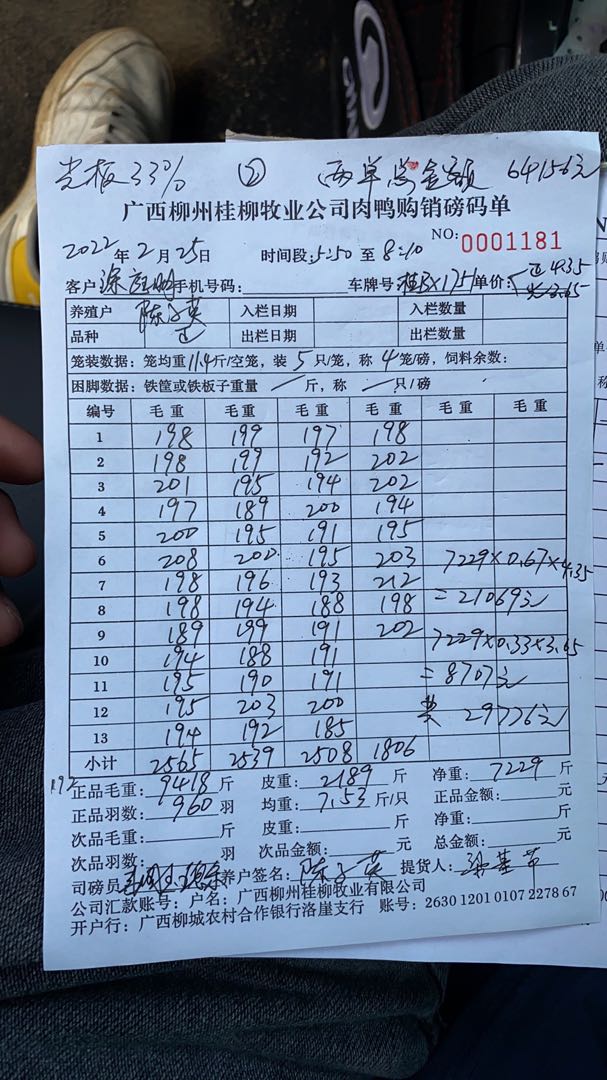 光板33% ② 两单总金额 64156元
广西柳州桂柳牧业公司肉鸭购销磅码单
2022年2月25日 时间段:5:50至8:10 NO:0001181
客户:涂 手机号码: 车牌号:桂BX1251 单价: 正4.35
光3.65
养殖户 陈 英 入栏日期 入栏数量
品种 正 出栏日期 出栏数量
笼装数据:笼均重11.4斤/空笼,装5只/笼,称4笼/磅,饲料余数:
困脚数据:铁筐或铁板子重量 — 斤,称 — 只/磅
编号 毛重 毛重 毛重 毛重 毛重 毛重
1 198 199 197 198
2 198 199 192 202
3 201 195 194 202
4 197 189 200 194
5 200 195 191 195
6 208 200 195 203 7229×0.67×4.35
7 198 196 193 212
8 198 194 188 198 =21069元
9 189 199 191 202 7229×0.33×3.65
10 194 188 191
11 195 190 191 =8707元
12 195 203 200 共29776元
13 194 192 185
小计 2565 2539 2508 1806
192
正品毛重:9418斤 皮重:2189斤 净重:7229斤
正品羽数:960羽 均重:7.53斤/只 正品金额: 元
次品毛重: 斤 皮重: 斤 净重: 斤
次品羽数: 羽 次品金额: 元 总金额: 元
司磅员: 养户签名:陈 英 提货人:
公司汇款账号:户名:广西柳州桂柳牧业有限公司
开户行:广西柳城农村合作银行洛崖支行 账号:2630 1201 0107 2278 67